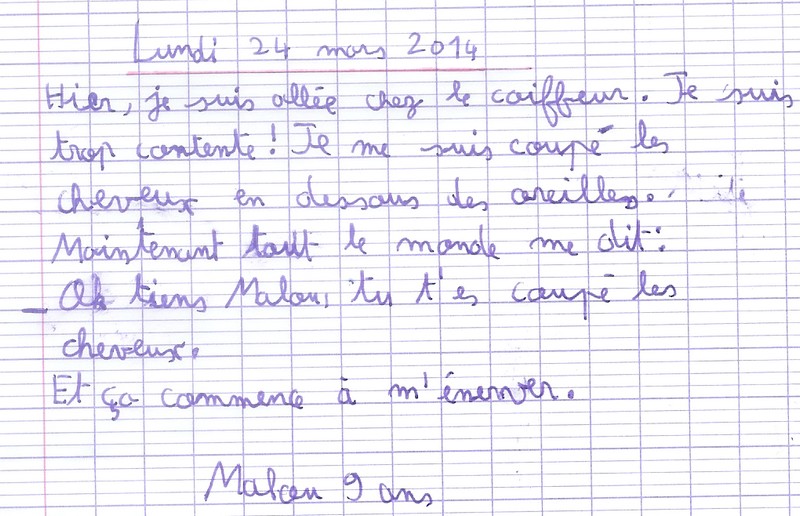 Lundi 24 mars 2014
Hier, je suis allée chez le coiffeur. Je suis
trop contente! Je me suis coupé les
cheveux en dessous des oreilles.
Maintenant tout le monde me dit:
- Ah tiens Malou, tu t'es coupé les
cheveux.
Et ça commence à m'énerver.
Malou 9 ans